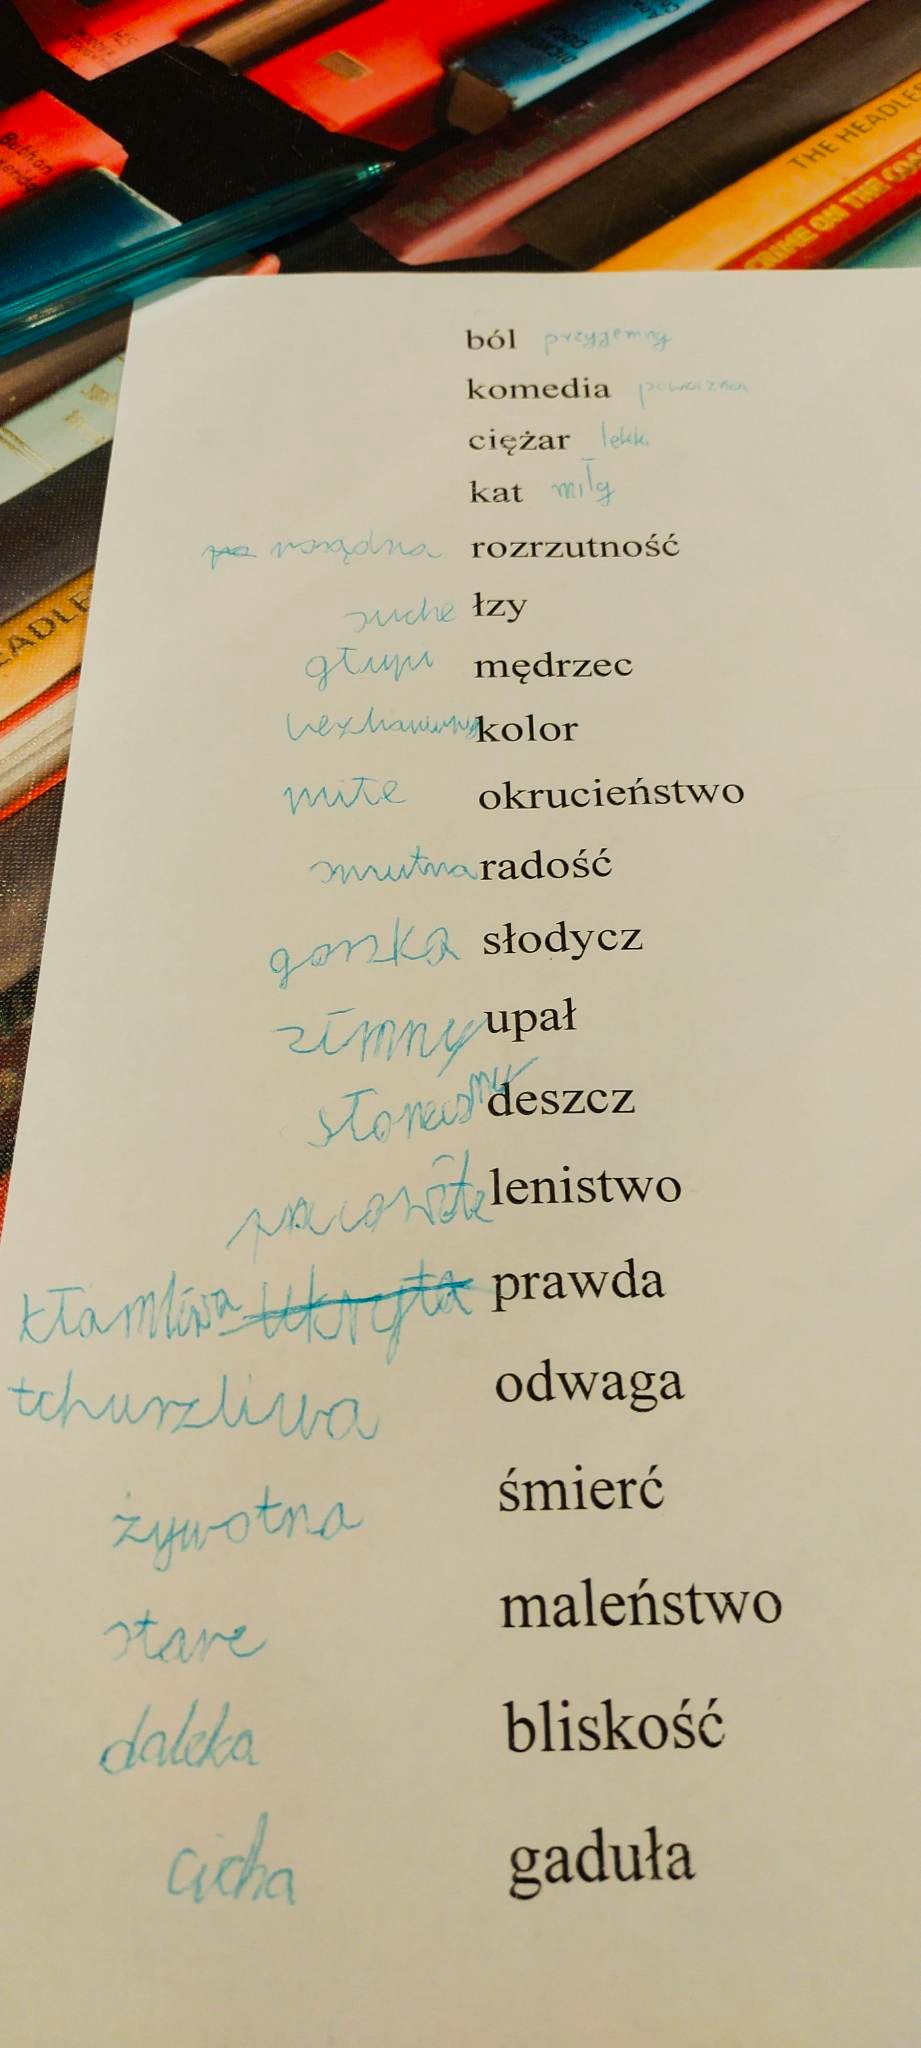 THE HEADLES
CRIME ON THE COA
EADLE
ból przyjemny
komedia poważna
ciężar lekki
kat miły
rozsądna rozrzutność
suche łzy
głupi mędrzec
kolor
miłe okrucieństwo
smutna radość
gorzka słodycz
zimny upał
słoneczny deszcz
pracowite lenistwo
kłamliwa ukryta prawda
tchurzliwa odwaga
żywotna śmierć
stare maleństwo
daleka bliskość
cicha gaduła